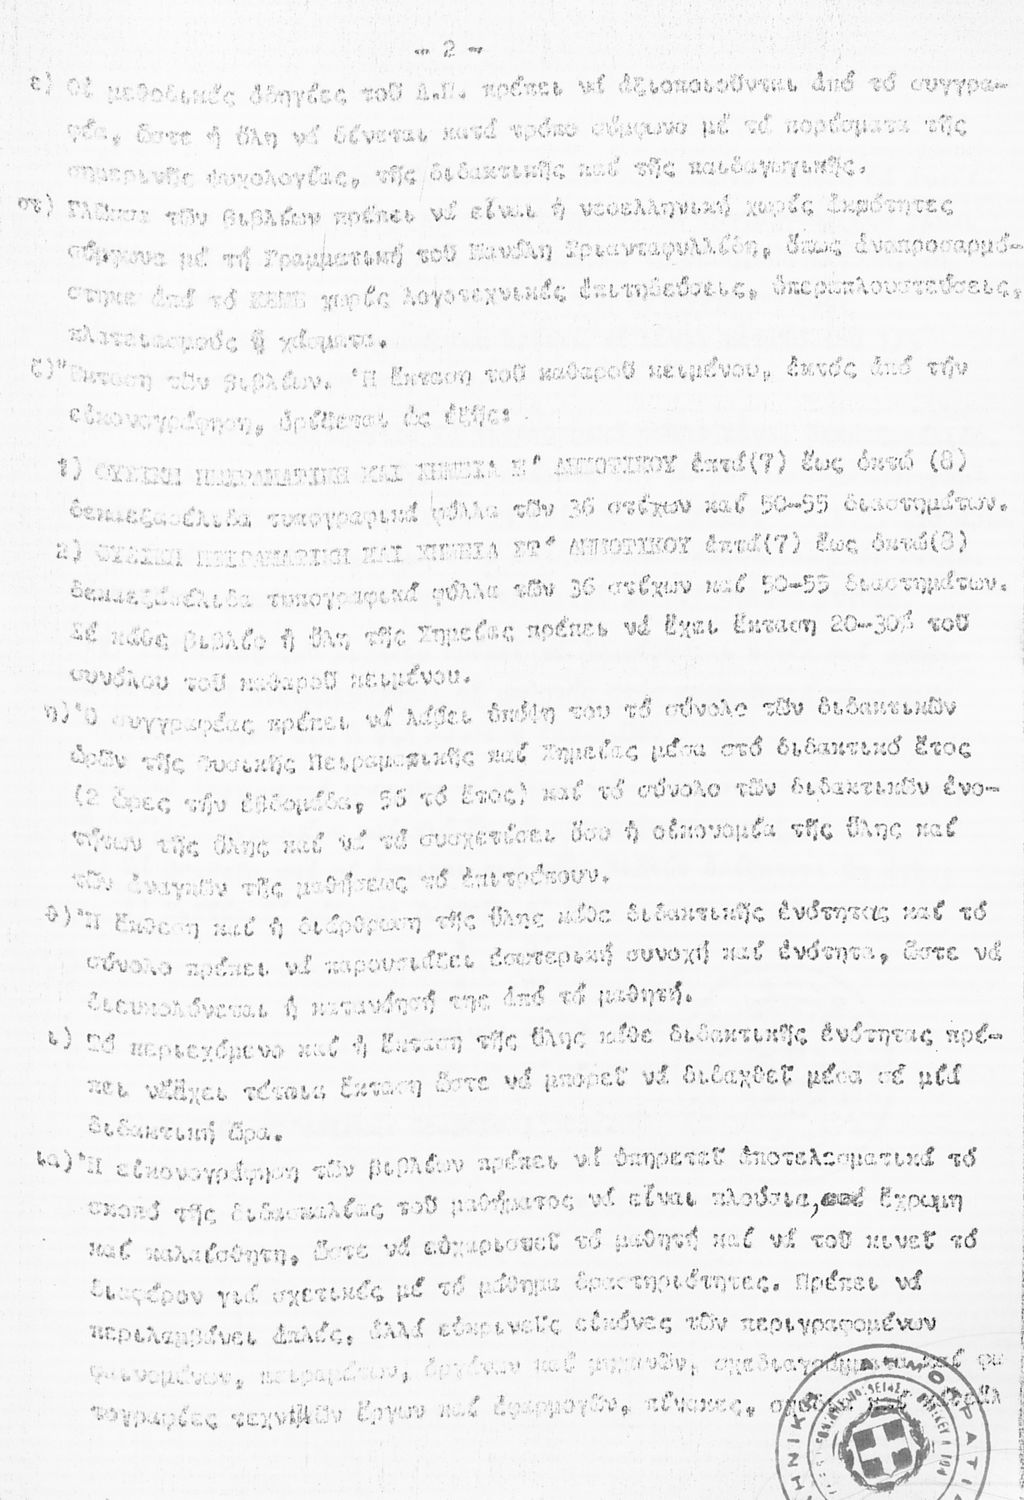 - 2 -
ε) Οἱ μεθοδικές ὁδηγίες τοῦ Α.Π. πρέπει νά ἀξιοποιοῦνται ἀπό τό συγγρα-
φέα, ὥστε ἡ ὕλη νά δίνεται κατά τρόπο σύμφωνο μέ τά πορίσματα τῆς
σημερινῆς ψυχολογίας, τῆς διδακτικῆς καί τῆς παιδαγωγικῆς.
στ) Γλῶσσα τῶν βιβλίων πρέπει νά εἶναι ἡ νεοελληνική χωρίς ἀκρότητες
σύμφωνα μέ τή Γραμματική τοῦ Μανόλη Τριανταφυλλίδη, ὅπως ἀναπροσαρμό-
στηκε ἀπό τό ΚΕΜΕ χωρίς λογοτεχνικές ἐπιτηδεύσεις, ὑπεραπλουστεύσεις,
πλατειασμούς ἤ χάσματα.
ζ) Ἔκταση τῶν βιβλίων. Ἡ ἔκταση τοῦ καθαροῦ κειμένου, ἐκτός ἀπό τήν
εἰκονογράφηση, ὁρίζεται ὡς ἑξῆς:
1) ΦΥΣΙΚΗ ΠΕΙΡΑΜΑΤΙΚΗ ΚΑΙ ΧΗΜΕΙΑ Ε' ΔΗΜΟΤΙΚΟΥ ἑπτά(7) ἕως ὀκτώ (8)
δεκαεξασέλιδα τυπογραφικά φύλλα τῶν 36 στίχων καί 50-55 διαστημάτων.
2) ΦΥΣΙΚΗ ΠΕΙΡΑΜΑΤΙΚΗ ΚΑΙ ΧΗΜΕΙΑ ΣΤ' ΔΗΜΟΤΙΚΟΥ ἑπτά(7) ἕως ὀκτώ(8)
δεκαεξασέλιδα τυπογραφικά φύλλα τῶν 36 στίχων καί 50-55 διαστημάτων.
Σέ κάθε βιβλίο ἡ ὕλη τῆς Χημείας πρέπει νά ἔχει ἔκταση 20-30% τοῦ
συνόλου τοῦ καθαροῦ κειμένου.
η) Ὁ συγγραφέας πρέπει νά λάβει ὑπόψη του τό σύνολο τῶν διδακτικῶν
ὡρῶν τῆς Φυσικῆς Πειραματικῆς καί Χημείας μέσα στό διδακτικό ἔτος
(2 ὧρες τήν ἑβδομάδα, 55 τό ἔτος) καί τό σύνολο τῶν διδακτικῶν ἑνο-
τήτων τῆς ὕλης καί νά τά συσχετίσει ὅσο ἡ οἰκονομία τῆς ὕλης καί
τῶν ἀναγκῶν τῆς μαθήσεως τό ἐπιτρέπουν.
θ) Ἡ ἔκθεση καί ἡ διάρθρωση τῆς ὕλης κάθε διδακτικῆς ἑνότητας καί τό
σύνολο πρέπει νά παρουσιάζει ἐσωτερική συνοχή καί ἑνότητα, ὥστε νά
διευκολύνεται ἡ κατανόησή της ἀπό τό μαθητή.
ι) Τό περιεχόμενο καί ἡ ἔκταση τῆς ὕλης κάθε διδακτικῆς ἑνότητας πρέ-
πει νἄχει τέτοια ἔκταση ὥστε νά μπορεῖ νά διδαχθεῖ μέσα σέ μία
διδακτική ὥρα.
ια) Ἡ εἰκονογράφηση τῶν βιβλίων πρέπει νά ὑπηρετεῖ ἀποτελεσματικά τό
σκοπό τῆς διδασκαλίας τοῦ μαθήματος νά εἶναι πλούσια, ἔχρωμη
καί καλαίσθητη, ὥστε νά εὐχαριστεῖ τό μαθητή καί νά τοῦ κινεῖ τό
διαφέρον γιά σχετικές μέ τό μάθημα δραστηριότητες. Πρέπει νά
περιλαμβάνει ἁπλές, ἀλλά εὐκρινεῖς εἰκόνες τῶν περιγραφομένων
φαινομένων, πειραμάτων, ὀργάνων καί μηχανῶν, σχεδιαγράμματα καί φω
τογραφίες τεχνικῶν ἔργων καί ἐφαρμογῶν, πίνακες,